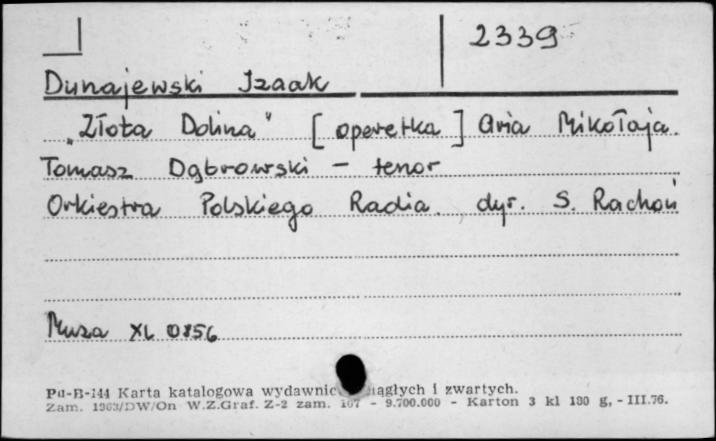 2339
Dunajewski Izaak
"Złota Dolina" [operetka] Aria Mikołaja.
Tomasz Dąbrowski – tenor
Orkiestra Polskiego Radia. dyr. S. Rachoń
Muza XL 0156
Pu-B-144 Karta katalogowa wydawnic iągłych i zwartych.
Zam. 1963/DW/On W.Z.Graf. Z-2 zam. 107 - 9.700.000 - Karton 3 kl 180 g, - III.76.